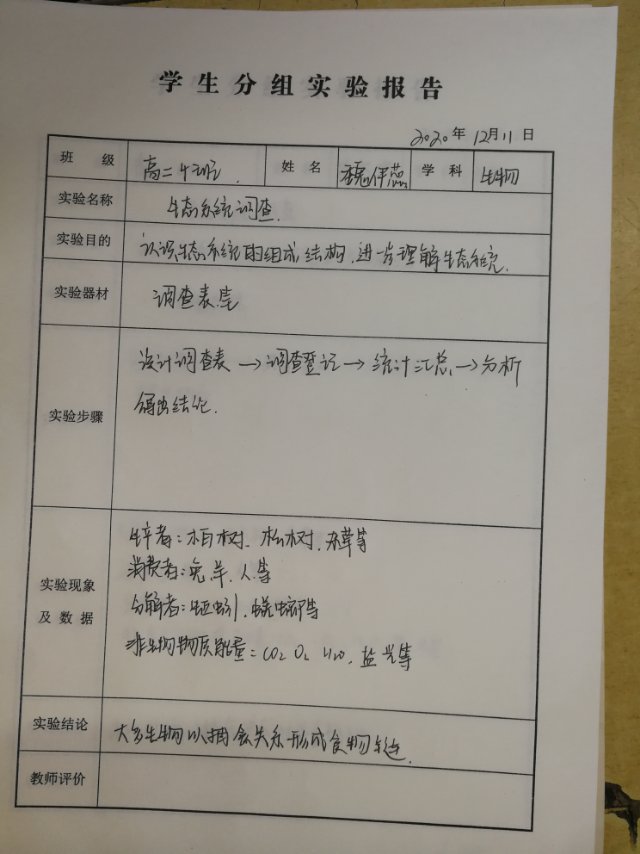 学生分组实验报告
2020年12月11日
班级 高二4班 姓名 魏伊蕊 学科 生物
实验名称 生态系统调查
实验目的 认识生态系统的组成结构,进一步理解生态系统.
实验器材 调查表笔
设计调查表→调查登记→统计汇总→分析
实验步骤 得出结论.
生产者:柏树、松树、杂草等
消费者:兔、羊、人等
实验现象
及数据
分解者:蚯蚓、蜣螂等
非生物物质能量:CO2 O2 H2O、盐、光等
实验结论 大多生物以捕食关系形成食物链.
教师评价